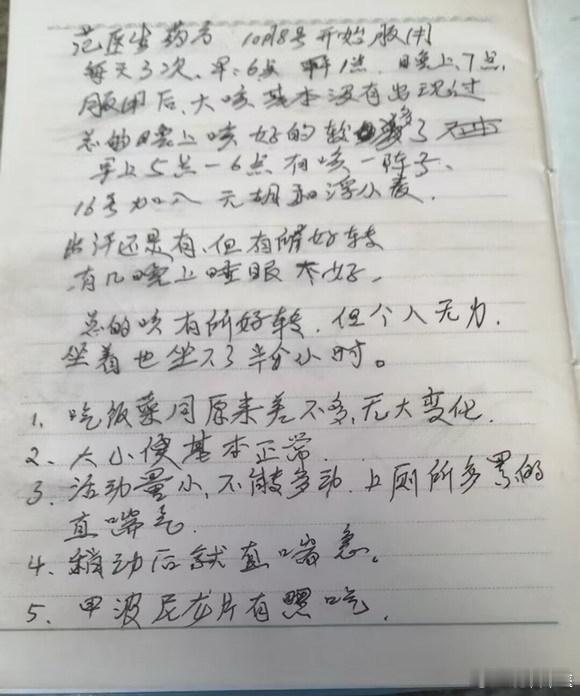 范医生药方 10月8号开始服用
每天3次、早:6点 中1点. 晚上、7点,
服用后、大咳基本没有出现过
总的晚上咳好的较多了
早上5点一6点有咳一阵子、
16号加入元胡和浮小麦.
出汗还是有、但有所好转
有几晚上睡眠不好.
总的咳有所好转.但个人无力.
坐着也坐不了半个小时。
1、吃饭菜同原来差不多,无大变化.
2、大小便基本正常.
3、活动量小、不能多动.上厕所多累的
直喘气.
4、稍动后就直喘急。
5、甲波尼龙片有照吃.